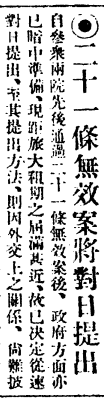 ◉二十一條無效案將對日提出
自參衆兩院先後通過二十一條無效案後、政府方面亦
已暗中準備、現距旅大租期之屆滿甚近、故已決定從速
對日提出、至其提出方法、則因外交上之關係、尙難披